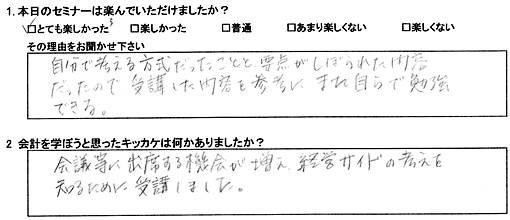 1. 本日のセミナーは楽んでいただけましたか？
□とても楽しかった □楽しかった □普通 □あまり楽しくない □楽しくない
その理由をお聞かせ下さい
自分で考える方式だったことと、要点がしぼられた内容
だったので 受講した内容を参考に また自らで勉強
できる。
2 会計を学ぼうと思ったキッカケは何かありましたか？
会議等に出席する機会が増え、経営サイドの考えを
知るために受講しました。